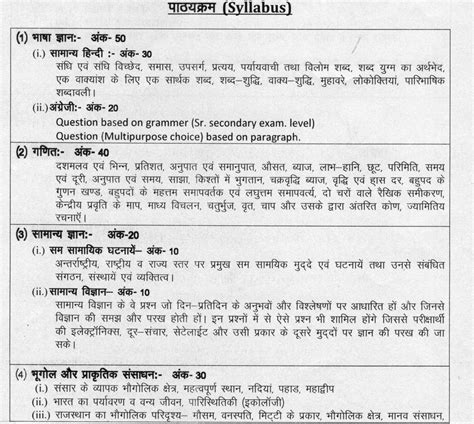 पाठयक्रम (Syllabus)
(1) भाषा ज्ञानः- अंक- 50
(i.) सामान्य हिन्दी :- अंक- 30
संधि एवं संधि विच्छेद, समास, उपसर्ग, प्रत्यय, पर्यायवाची तथा विलोम शब्द, शब्द युग्म का अर्थभेद,
एक वाक्यांश के लिए एक सार्थक शब्द, शब्द–शुद्धि, वाक्य–शुद्धि, मुहावरे, लोकोक्तियां, पारिभाषिक
शब्दावली।
(ii.) अंग्रेजीः- अंक- 20
Question based on grammer (Sr. secondary exam. level)
Question (Multipurpose choice) based on paragraph.
(2) गणितः- अंक- 40
दशमलव एवं भिन्न, प्रतिशत, अनुपात एवं समानुपात, औसत, ब्याज, लाभ–हानि, छूट, परिमिति, समय
एवं दूरी, अनुपात एवं समय, साझा, किश्तों में भुगतान, चक्रवृद्धि ब्याज, वृद्धि एवं ह्रास दर, बहुपद के
गुणन खण्ड, बहुपदों के महत्तम समापवर्तक एवं लघुत्तम समापवर्त्य, दो चरों वाले रैखिक समीकरण,
केन्द्रीय प्रवृति के माप, माध्य विचलन, चतुर्भुज, वृत, चाप और उसके द्वारा अंतरित कोण, ज्यामितिय
रचनाऐं।
(3) सामान्य ज्ञानः- अंक-20
(i.) सम सामायिक घटनायें– अंक- 10
अन्तर्राष्ट्रीय, राष्ट्रीय व राज्य स्तर पर प्रमुख सम सामयिक मुद्दे एवं घटनायें तथा उनसे संबंधित
संगठन, संस्थायें एवं व्यक्तित्व।
(ii.) सामान्य विज्ञान– अंक- 10
सामान्य विज्ञान के वे प्रश्न जो दिन–प्रतिदिन के अनुभवों और विश्लेषणों पर आधारित हों और जिनसे
विज्ञान की समझ और परख होती हों। इन प्रश्नों में से ऐसे प्रश्न भी शामिल होंगे जिससे परीक्षार्थी
की इलेक्ट्रॉनिक्स, दूर–संचार, सेटेलाईट और उसी प्रकार के दूसरे मुद्दों पर ज्ञान की परख की जा
सके।
(4) भूगोल और प्राकृतिक संसाधनः- अंक- 30
(i.) संसार के व्यापक भौगोलिक क्षेत्र, महत्वपूर्ण स्थान, नदियां, पहाड, महाद्वीप
(ii.) भारत का पर्यावरण व वन्य जीवन, पारिस्थितिकी (इकोलॉजी)
(iii.) राजस्थान का भौगोलिक परिदृश्य– मौसम, वनस्पति, मिट्टी के प्रकार, भौगोलिक क्षेत्र, मानव संसाधन,